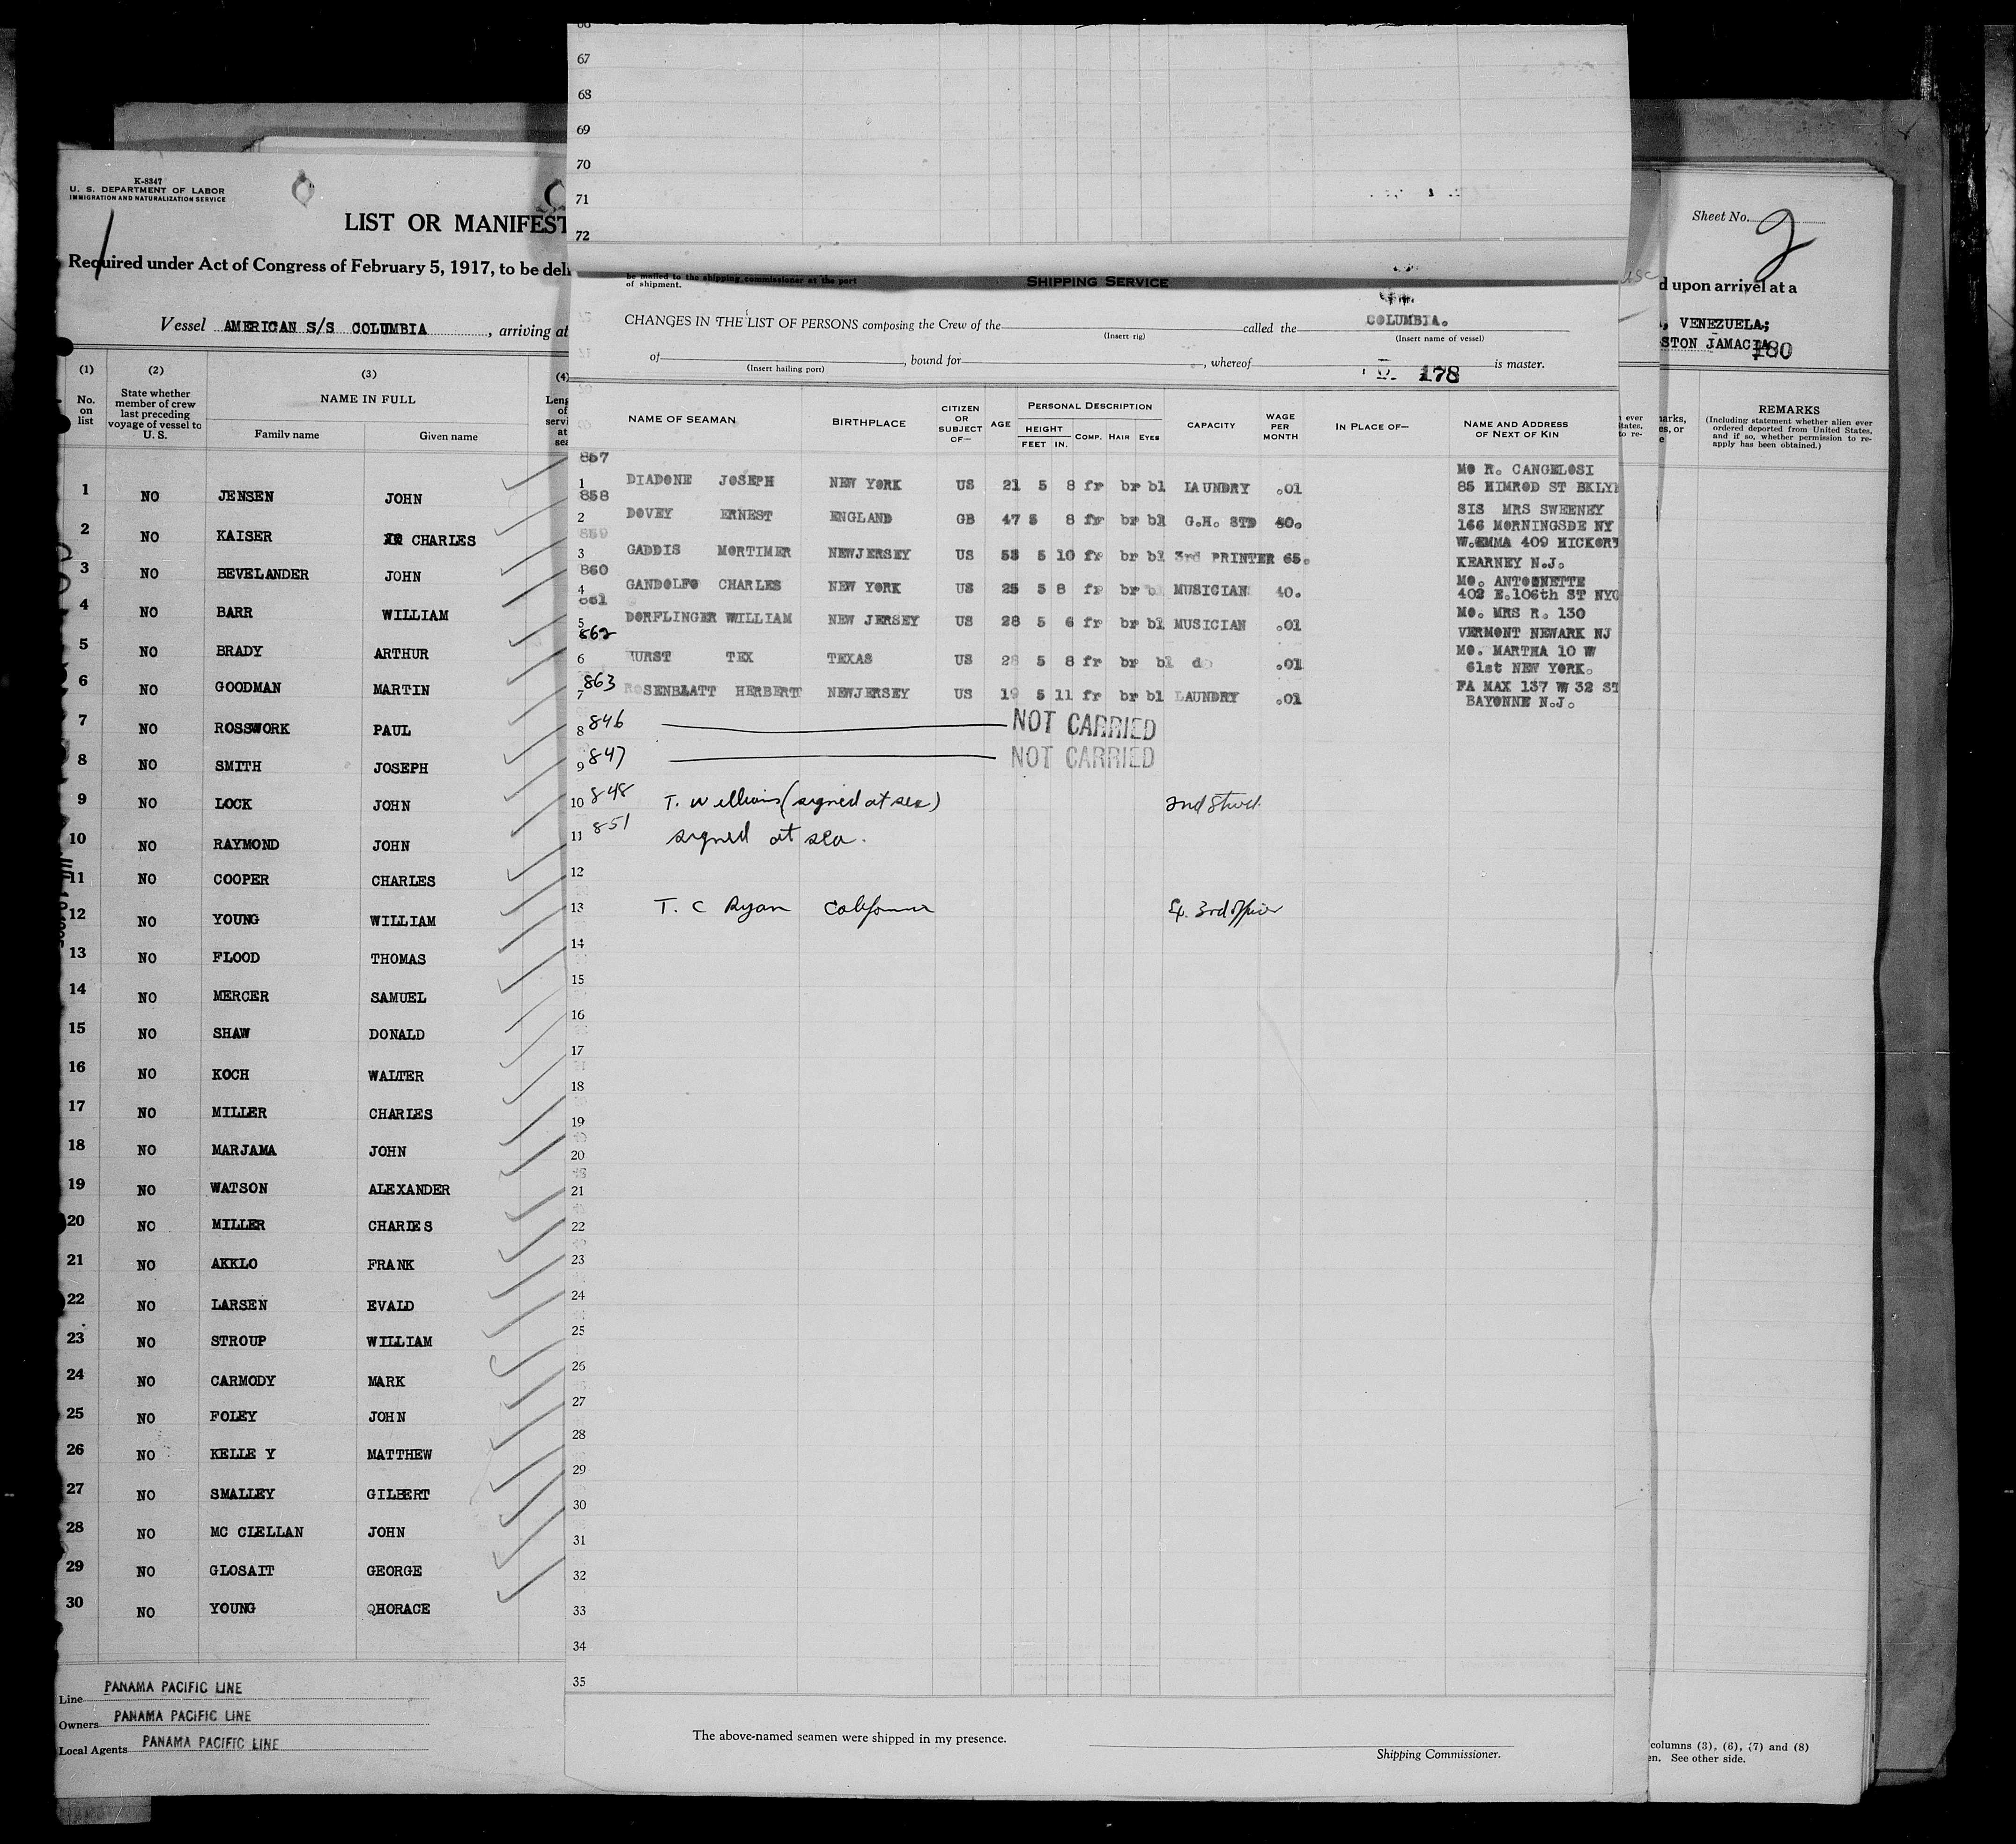 K-8347
U. S. DEPARTMENT OF LABOR
IMMIGRATION AND NATURALIZATION SERVICE
LIST OR MANIFEST
Required under Act of Congress of February 5, 1917, to be deli
Vessel AMERICAN S/S COLUMBIA, arriving at
(1) (2) (3) (4)
No. on list
State whether member of crew last preceding voyage of vessel to U. S.
NAME IN FULL
Family name Given name
1 NO JENSEN JOHN
2 NO KAISER CHARLES
3 NO BEVELANDER JOHN
4 NO BARR WILLIAM
5 NO BRADY ARTHUR
6 NO GOODMAN MARTIN
7 NO ROSSWORK PAUL
8 NO SMITH JOSEPH
9 NO LOCK JOHN
10 NO RAYMOND JOHN
11 NO COOPER CHARLES
12 NO YOUNG WILLIAM
13 NO FLOOD THOMAS
14 NO MERCER SAMUEL
15 NO SHAW DONALD
16 NO KOCH WALTER
17 NO MILLER CHARLES
18 NO MARJAMA JOHN
19 NO WATSON ALEXANDER
20 NO MILLER CHARLES
21 NO AKKLO FRANK
22 NO LARSEN EVALD
23 NO STROUP WILLIAM
24 NO CARMODY MARK
25 NO FOLEY JOHN
26 NO KELLE Y MATTHEW
27 NO SMALLEY GILBERT
28 NO MC CLELLAN JOHN
29 NO GLOSAIT GEORGE
30 NO YOUNG QHORACE
Line PANAMA PACIFIC LINE
Owners PANAMA PACIFIC LINE
Local Agents PANAMA PACIFIC LINE
67
68
69
70
71
72
be mailed to the shipping commissioner at the port
of shipment.
SHIPPING SERVICE
CHANGES IN THE LIST OF PERSONS composing the Crew of the called the COLUMBIA.
(Insert rig) (Insert name of vessel)
of , bound for , whereof 178 is master.
(Insert hailing port)
NAME OF SEAMAN BIRTHPLACE CITIZEN OR SUBJECT OF— AGE PERSONAL DESCRIPTION HEIGHT FEET IN. COMP. HAIR EYES CAPACITY WAGE PER MONTH IN PLACE OF— NAME AND ADDRESS OF NEXT OF KIN
857 MO R. CANGELOSI
1 DIADONE JOSEPH NEW YORK US 21 5 8 fr br bl LAUNDRY .01 85 HIMROD ST BKLYN
858 SIS MRS SWEENEY
2 DOVEY ERNEST ENGLAND GB 47 5 8 fr br bl G.H. STD 40. 166 MORNINGSDE NY
859 W.EMMA 409 HICKORY
3 GADDIS MORTIMER NEWJERSEY US 53 5 10 fr br bl 3rd PRINTER 65. KEARNEY N.J.
860 MO. ANTOONETTE
4 GANDOLFO CHARLES NEW YORK US 25 5 8 fr br bl MUSICIAN 40. 402 E.106th ST NYC
861 MO. MRS R. 130
5 DORFLINGER WILLIAM NEW JERSEY US 28 5 6 fr br bl MUSICIAN .01 VERMONT NEWARK NJ
862 MO. MARTHA 10 W
6 HURST TEX TEXAS US 28 5 8 fr br bl do .01 61st NEW YORK.
863 FA MAX 137 W 32 ST
7 ROSENBLATT HERBERT NEWJERSEY US 19 5 11 fr br bl LAUNDRY .01 BAYONNE N.J.
8 846 NOT CARRIED
9 847 NOT CARRIED
10 848 T. Williams (signed at sea) 2nd Stwd.
11 851 signed at sea.
12
13 T. C Ryan California 3rd officer
14
15
16
17
18
19
20
21
22
23
24
25
26
27
28
29
30
31
32
33
34
35
The above-named seamen were shipped in my presence.
Shipping Commissioner.
Sheet No. 2
d upon arrival at a
, VENEZUELA;
STON JAMACIA
180
REMARKS
(Including statement whether alien ever
ordered deported from United States,
and if so, whether permission to re-
apply has been obtained.)
columns (3), (6), (7) and (8)
en. See other side.